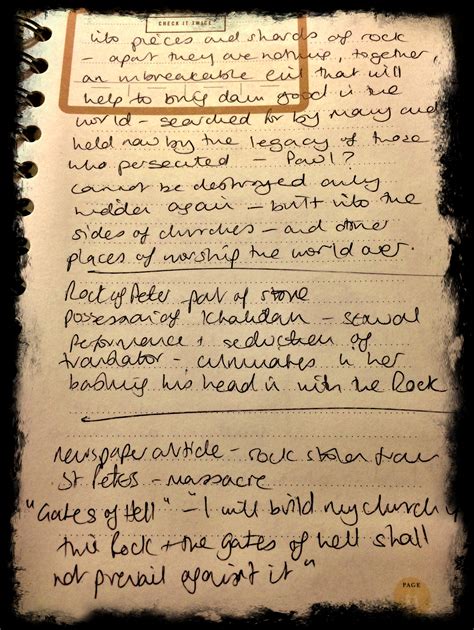 CHECK IT TWICE
into pieces and shards of rock
- apart they are nothing, together,
an unbreakable evil that will
help to bring down good in the
world - searched for by many and
held now by the legacy of those
who persecuted - Paul?
cannot be destroyed only
hidden again - built into the
sides of churches - and other
places of worship the world over.
Rock of Peter part of stone
possession of - sexual
performance + seduction of
translator - culminates in her
bashing his head in with the Rock
newspaper article - rock stolen from
St Peters - massacre
"Gates of Hell" - "I will build my church
this Rock + the gates of hell shall
not prevail against it"
PAGE